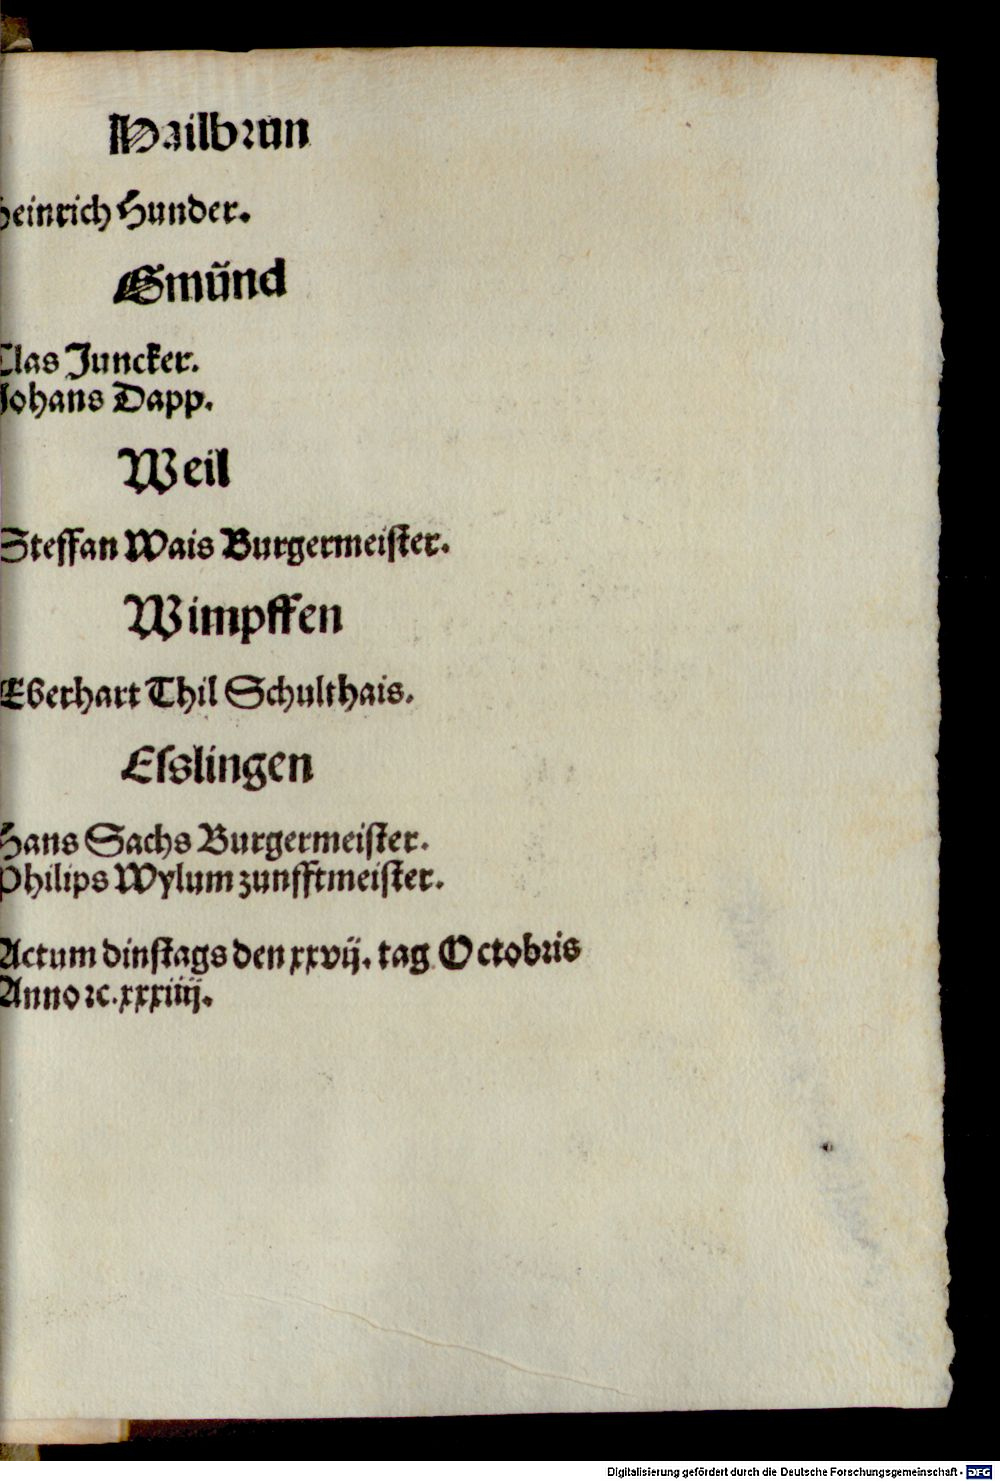 Hailbrun
Heinrich Hunder.
Gmünd
Clas Juncker.
Johans Dapp.
Weil
Steffan Wais Burgermeister.
Wimpffen
Eberhart Thil Schulthais.
Eſslingen
Hans Sachs Burgermeiſter.
Philips Wylum zunfftmeiſter.
Actum dinſtags den xxvij. tag Octobris
Anno ꝛc. xxxiiij.
Digitalisierung gefördert durch die Deutsche Forschungsgemeinschaft - DFG